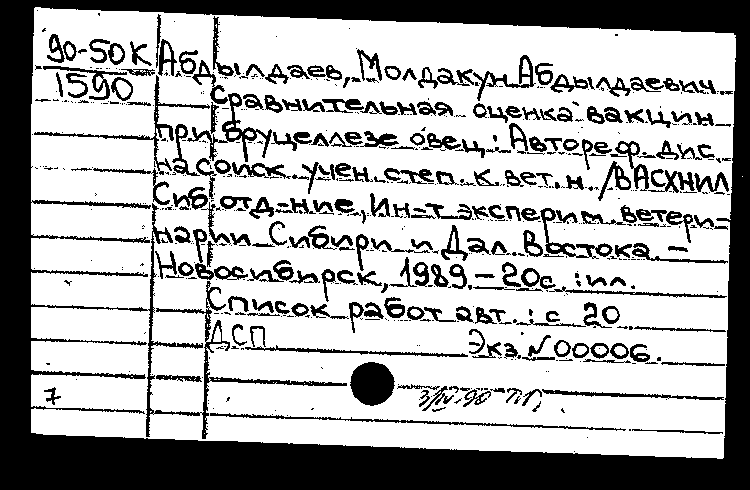 90-50К
1590
Абдылдаев, Молдакун Абдылдаевич
Сравнительная оценка вакцин
при бруцеллезе овец : Автореф. дис.
на соиск. учен. степ. к. вет. н. /ВАСХНИЛ
Сиб. отд-ние, Ин-т эксперим. ветери-
нарии Сибири и Дал. Востока. –
Новосибирск, 1989. – 20с. : ил.
Список работ авт. : с 20
ДСП Экз №00006.
7